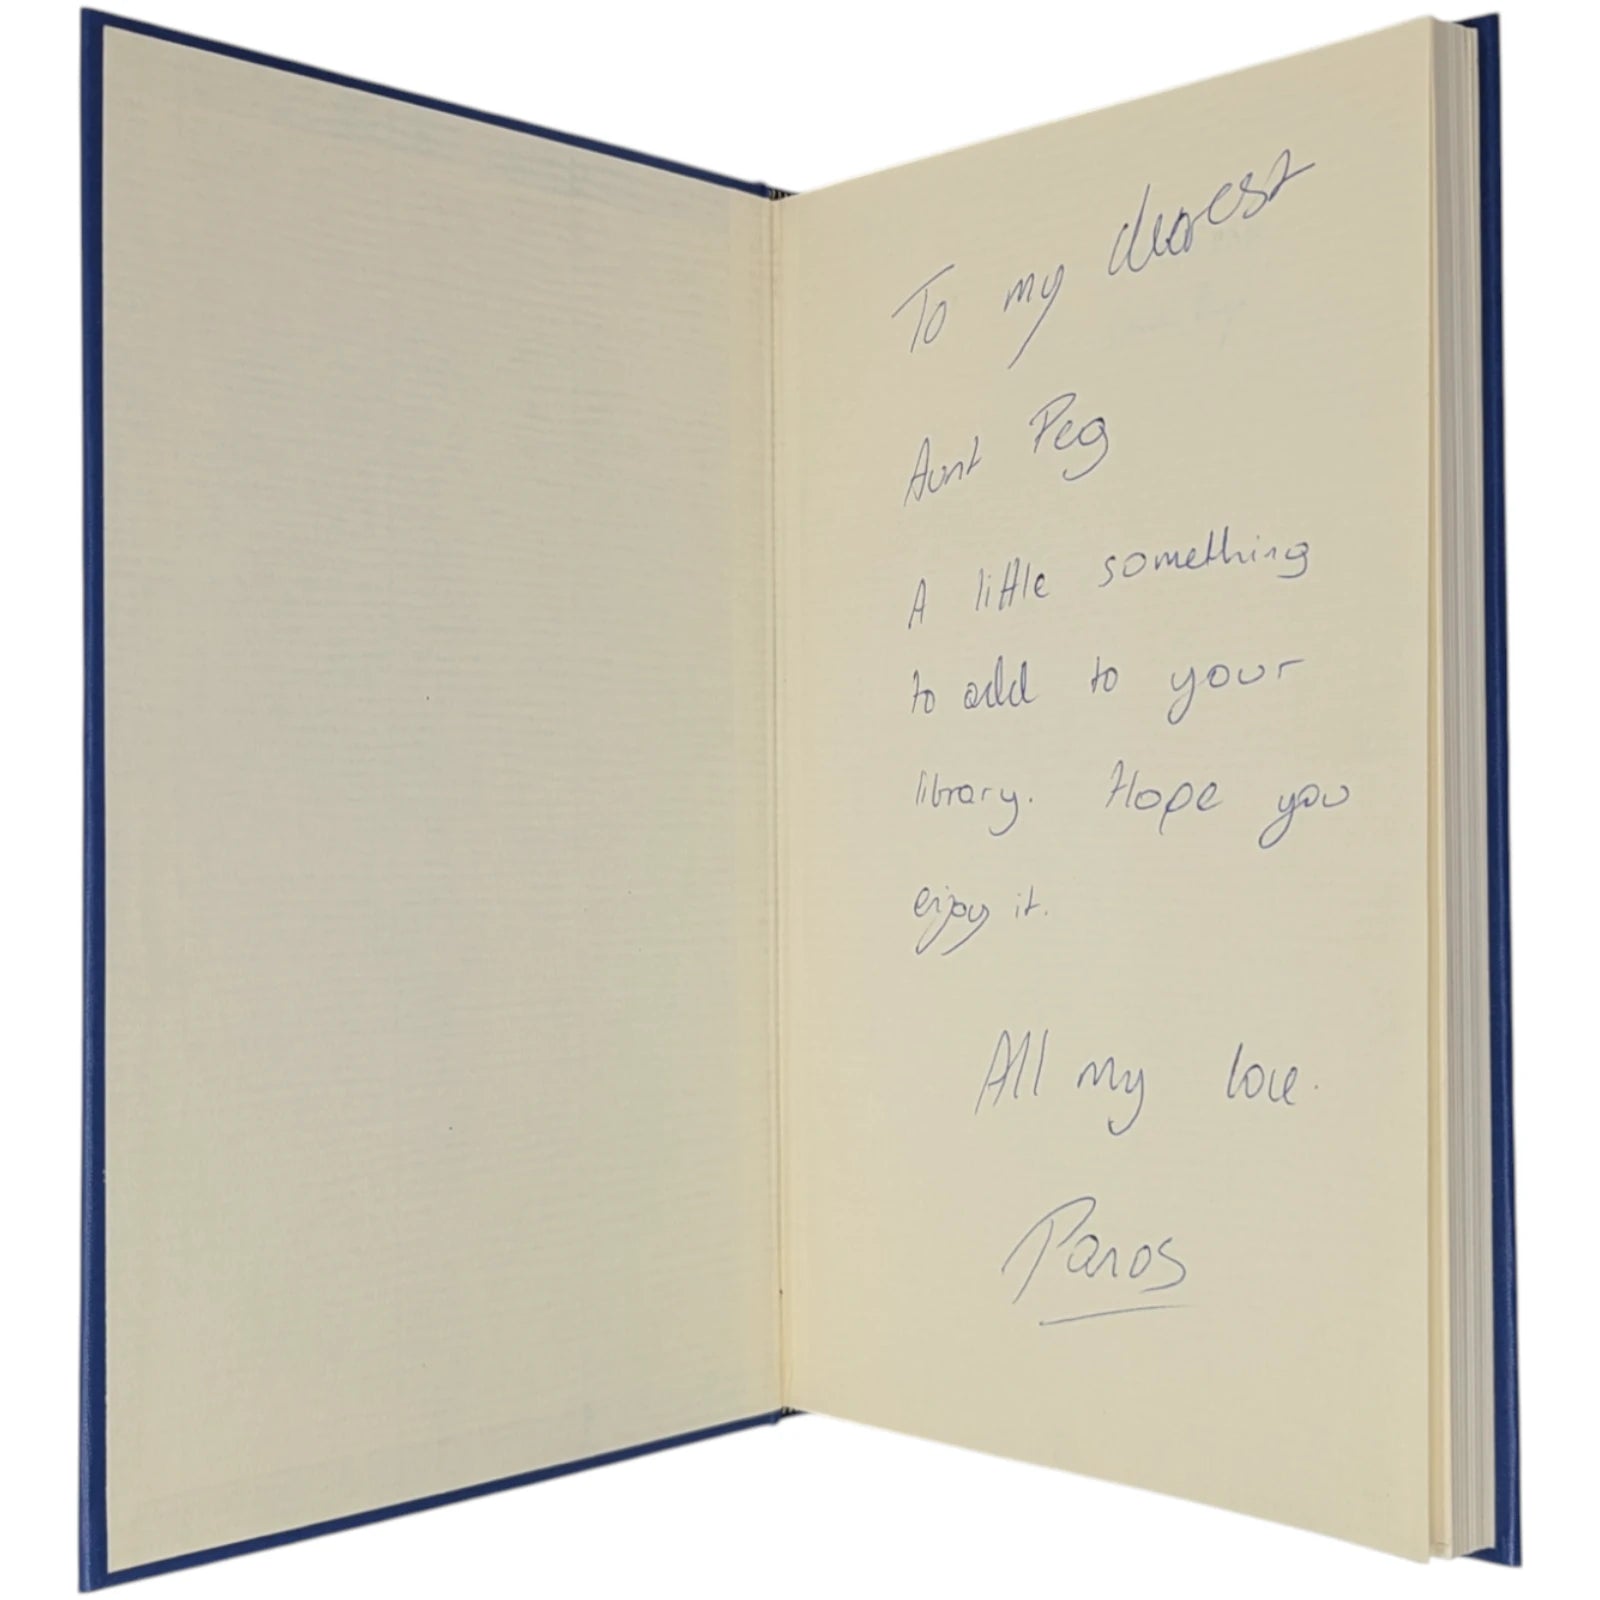 To my dearest
Aunt Peg
A little something
to add to your
library. Hope you
enjoy it.
All my love.
Paros